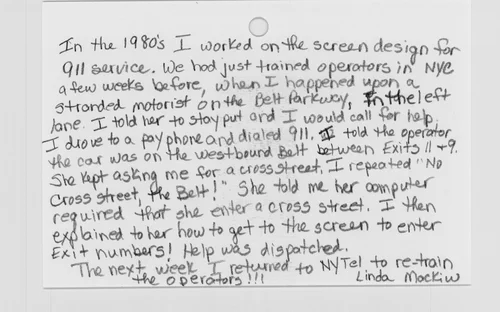 In the 1980's I worked on the screen design for
911 service. We had just trained operators in NYC
a few weeks before, when I happened upon a
stranded motorist on the Belt Parkway, in the left
lane. I told her to stay put and I would call for help.
I drove to a pay phone and dialed 911. I told the operator
the car was on the westbound Belt between Exits 11 + 9.
She kept asking me for a cross street, I repeated "No
Cross street, the Belt!" She told me her computer
required that she enter a cross street. I then
explained to her how to get to the screen to enter
Exit numbers! Help was dispatched.
The next week I returned to NYTel to re-train
the operators!!! Linda Mackiw